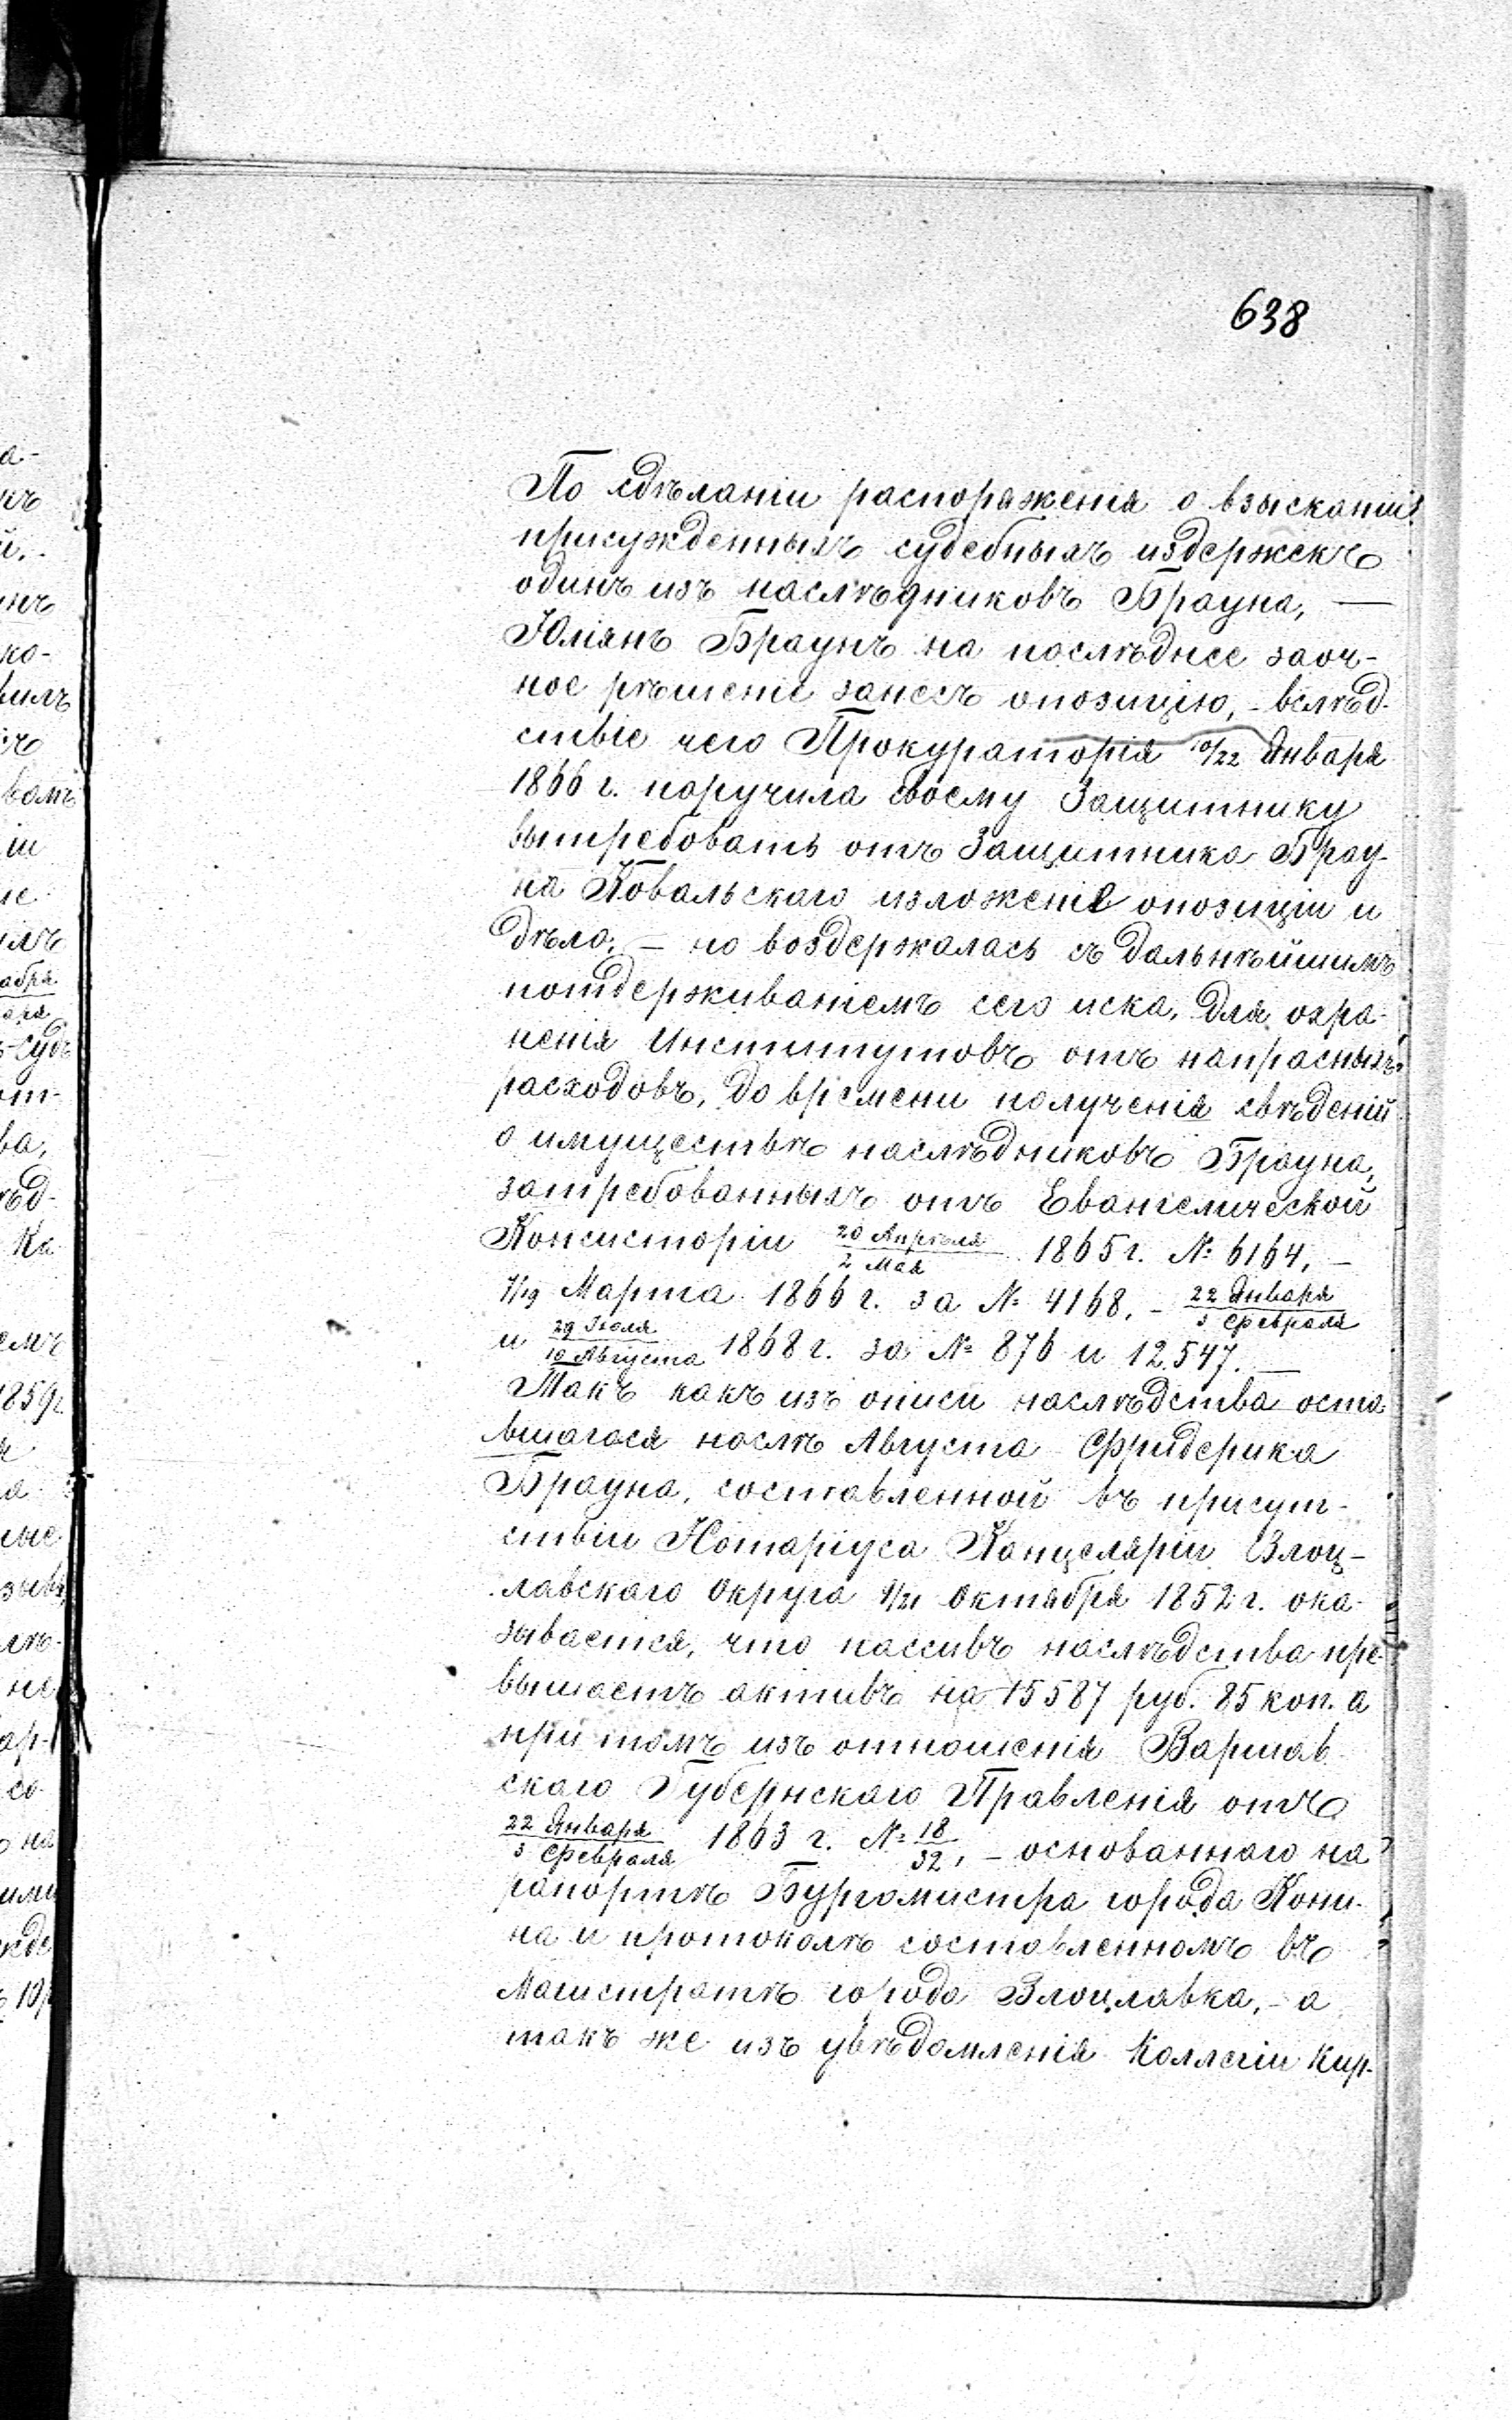 638
По сдѣланіи распоряженія о взысканіи
присужденныхъ судебныхъ издержекъ
одинъ изъ наслѣдниковъ Брауна, —
Юліянъ Браунъ на послѣднее заоч-
ное рѣшеніе занесъ опозицію, - вслѣд-
ствіе чего Прокураторія 10/22 Января
1866 г. поручила своему Защитнику
вытребовать отъ Защитника Брау-
на Ковальскаго изложеніе опозиціи и
дѣло, — но воздержалась съ дальнѣйшимъ
поддерживаніемъ сего иска, для охра-
ненія Институтовъ отъ напрасныхъ
расходовъ, до времени полученія свѣденій
о имуществѣ наслѣдниковъ Брауна,
затребованныхъ отъ Евангелической
Консисторіи 20 Апрѣля/2 Мая 1865 г. № 6164, —
7/19 Марта 1866 г. за № 4168, - 22 Января/3 Февраля
и 29 Іюля/10 Августа 1868 г. за № 876 и 12,547. —
Такъ какъ изъ описи наслѣдства оста-
вшагося послѣ Августа Фридерика
Брауна, составленной въ присут-
ствіи Нотаріуса Канцеляріи Влоц-
лавскаго Округа 9/21 Октября 1852 г. ока-
зывается, что пассивъ наслѣдства пре-
вышаетъ активъ на 15587 руб. 85 коп. а
при томъ изъ отношенія Варшав-
скаго Губернскаго Правленія отъ
22 Января/3 Февраля 1863 г. № 18/32, - основаннаго на
рапортѣ Бургомистра города Кони-
на и протоколѣ составленномъ въ
Магистратѣ города Влоцлавка, - а
такъ же изъ увѣдомленія Коллегіи Кир-